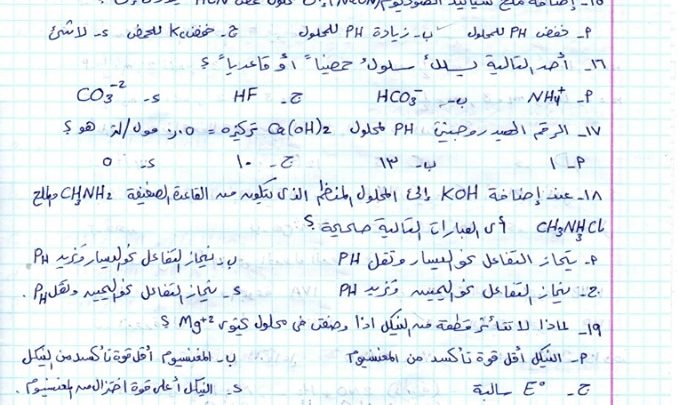 ١٥- إضافة ملح سيانيد الصوديوم (NaCN) إلى محلول حمض HCN
P- خفض PH للمحلول ب- زيادة PH للمحلول ج- خفض Ka للحمض د- لا شئ
١٦- أحد التالية يسلك سلوك حمضياً أو قاعدياً ؟
P- NH4+ ب- HCO3- ج- HF د- CO3-2
١٧- الرقم الهيدروجيني PH لمحلول Ca(OH)2 تركيزه = ٠.٥ مول/لتر هو ؟
P- ١ ب- ١٣ ج- ١٠ د- ٥
١٨- عند إضافة KOH إلى المحلول المنظم الذي يتكون من القاعدة الضعيفة CH3NH2 والملح
CH3NH3Cl أي العبارات التالية صحيحة ؟
P- ينحاز التفاعل نحو اليسار وتقل PH ب- ينحاز التفاعل نحو اليسار وتزيد PH
ج- ينحاز التفاعل نحو اليمين وتزيد PH د- ينحاز التفاعل نحو اليمين وتقل PH.
١٩- لماذا لا تتأثر قطعة من النيكل اذا وضعت في محلول يحوي Mg+2 ؟
P- النيكل أقل قوة تأكسد من المغنسيوم ب- المغنسيوم أقل قوة تأكسد من النيكل
ج- E° سالبة د- النيكل أعلى قوة اختزال من المغنسيوم.